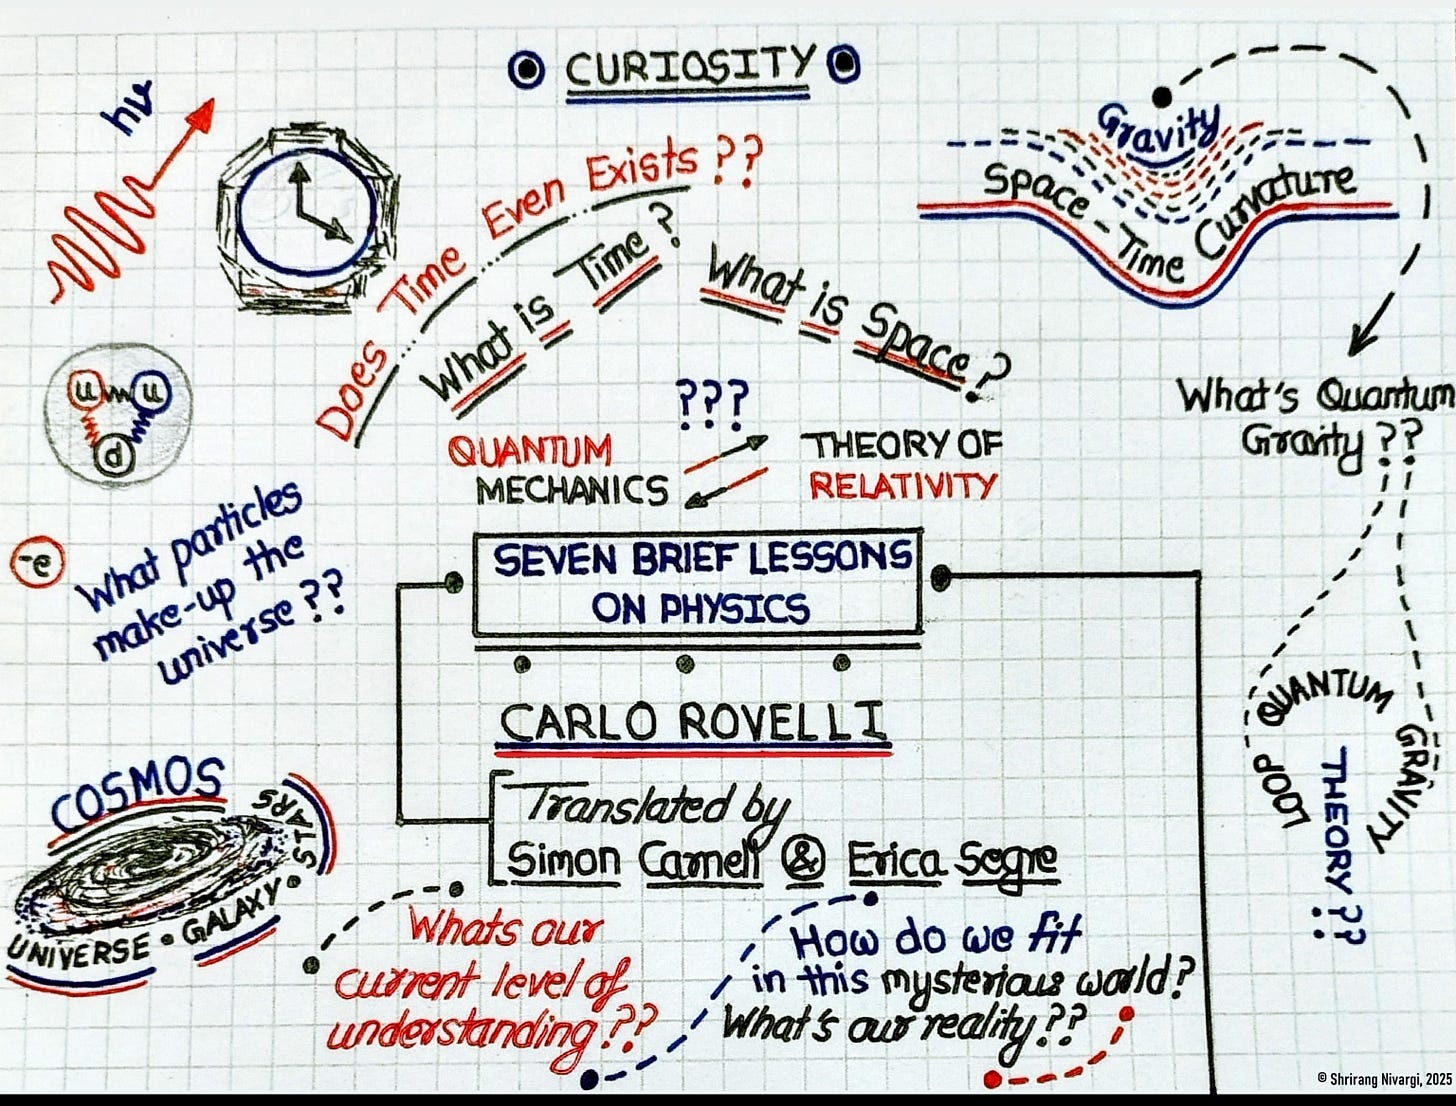 CURIOSITY
hν
Does Time Even Exists ??
What is Time ?
What is Space ?
Gravity
Space-Time Curvature
What's Quantum
Gravity ??
???
QUANTUM
MECHANICS
THEORY OF
RELATIVITY
u u
d
-e
What particles
make-up the
universe ??
SEVEN BRIEF LESSONS
ON PHYSICS
CARLO ROVELLI
Translated by
Simon Carnell & Erica Segre
LOOP QUANTUM GRAVITY
THEORY ??
COSMOS
UNIVERSE • GALAXY • STARS
Whats our
current level of
understanding ??
How do we fit
in this mysterious world?
What's our reality ??
© Shrirang Nivargi, 2025